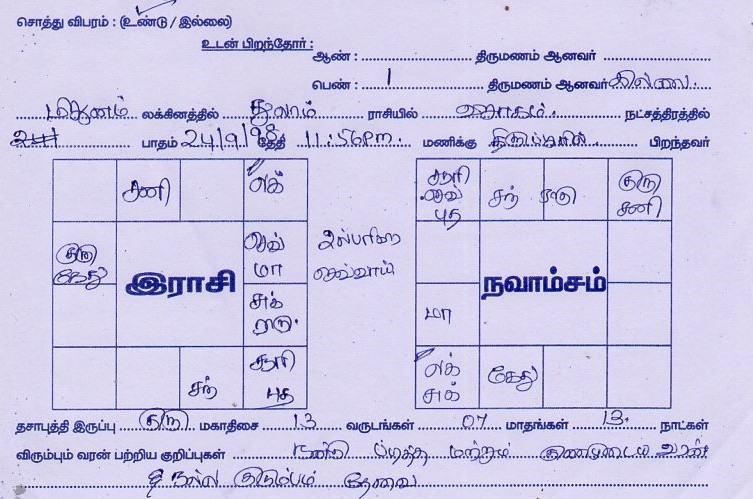 சொத்து விபரம் : (உண்டு / இல்லை)
உடன் பிறந்தோர் :
ஆண் : திருமணம் ஆனவர்
பெண் : 1 திருமணம் ஆனவர் இல்லை.
மிதுனம் லக்கினத்தில் துலாம் ராசியில் விசாகம். நட்சத்திரத்தில்
2ம் பாதம் 24/9/98 தேதி 11:56pm. மணிக்கு பிறந்தவர்
சனி லக் சூரி செவ் புத சந் ராகு குரு சனி
குரு கேது செவ் மா செவ்வாய்
இராசி நவாம்சம்
சுக் ராகு. மா
சந் சூரி புத லக் சுக் கேது
தசாபுத்தி இருப்பு குரு மகாதிசை 13 வருடங்கள் 07 மாதங்கள் 13. நாட்கள்
விரும்பும் வரன் பற்றிய குறிப்புகள் நன்கு படித்த மற்றும் குணமுடைய வரன்
நல்ல குடும்பம் தேவை